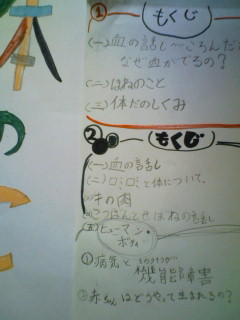 ①
もくじ
(一)血の話し〜ころんだら
なぜ血がでるの?
(二)ほねのこと
(三)体だのしくみ
②
もくじ
(一)血の話し
(二)と体について
の肉
こつばんとせぼねの話し
(五)ヒューマン・
ボディ
①病気と
機能障害
②赤ちゃんはどうやって生まれるの?
の